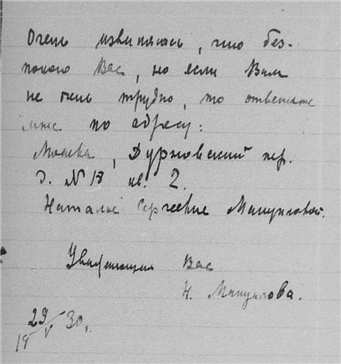 Очень извиняюсь, что без-
покою Вас, но если Вам
не очень трудно, то ответьте
мне по адресу:
Москва, Дурновский пер.
д. N 13 кв. 2.
Наталье Сергеевне
Уважающая Вас
Н.
29/V 30.
19